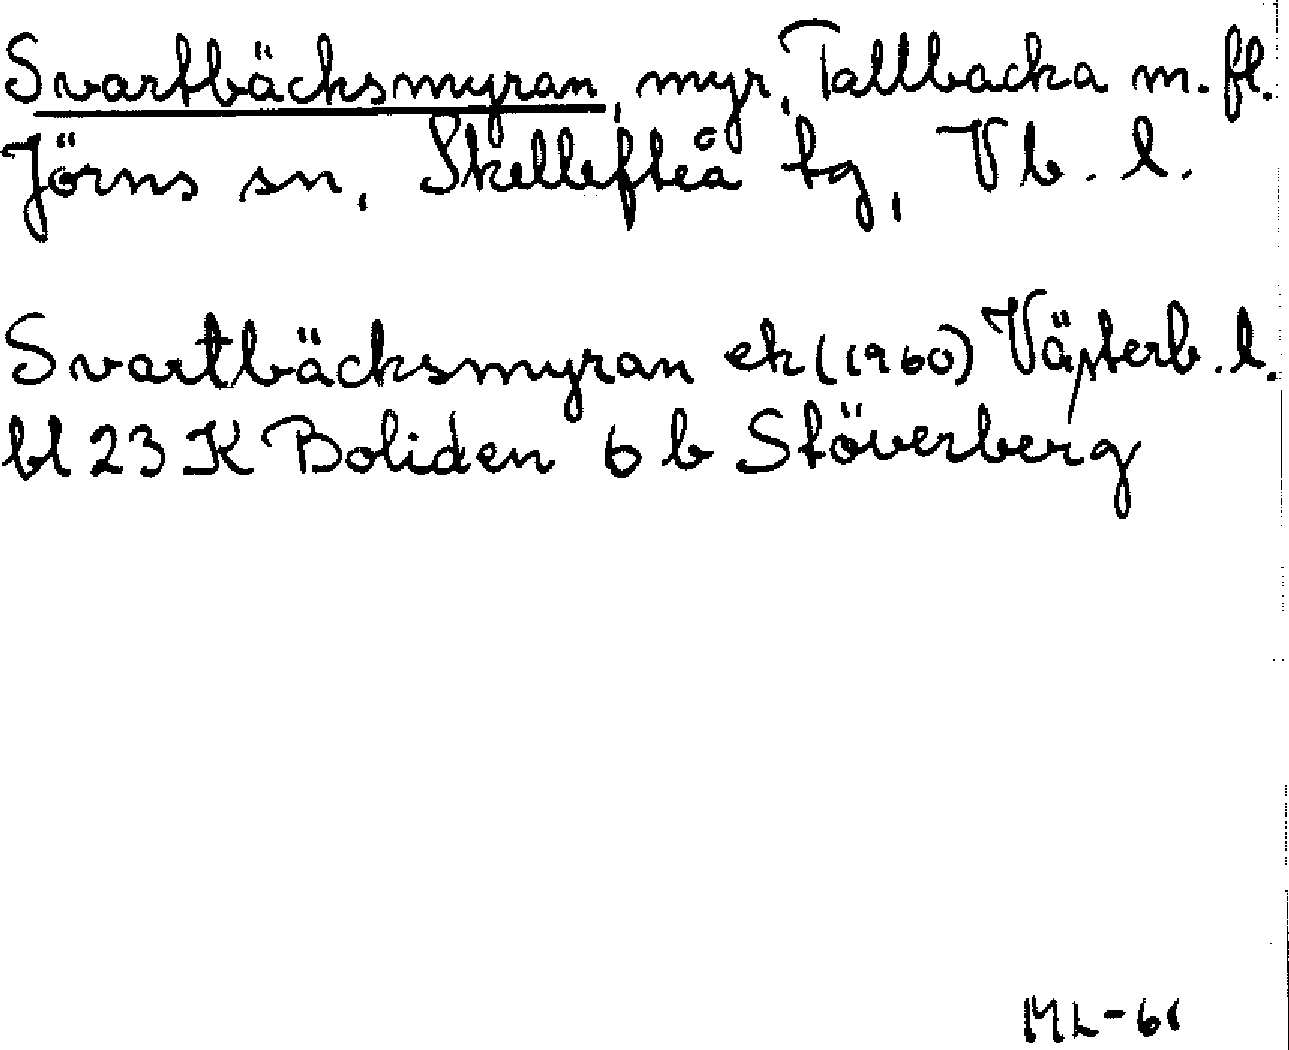 Svartbäcksmyran, myr, Tallbacka m. fl.
Jörns sn, Skellefteå tg, Vb. l.
Svartbäcksmyran ek (1960) Västerb. l.
bl 23 K Boliden 6 b Stöverberg
ML-61